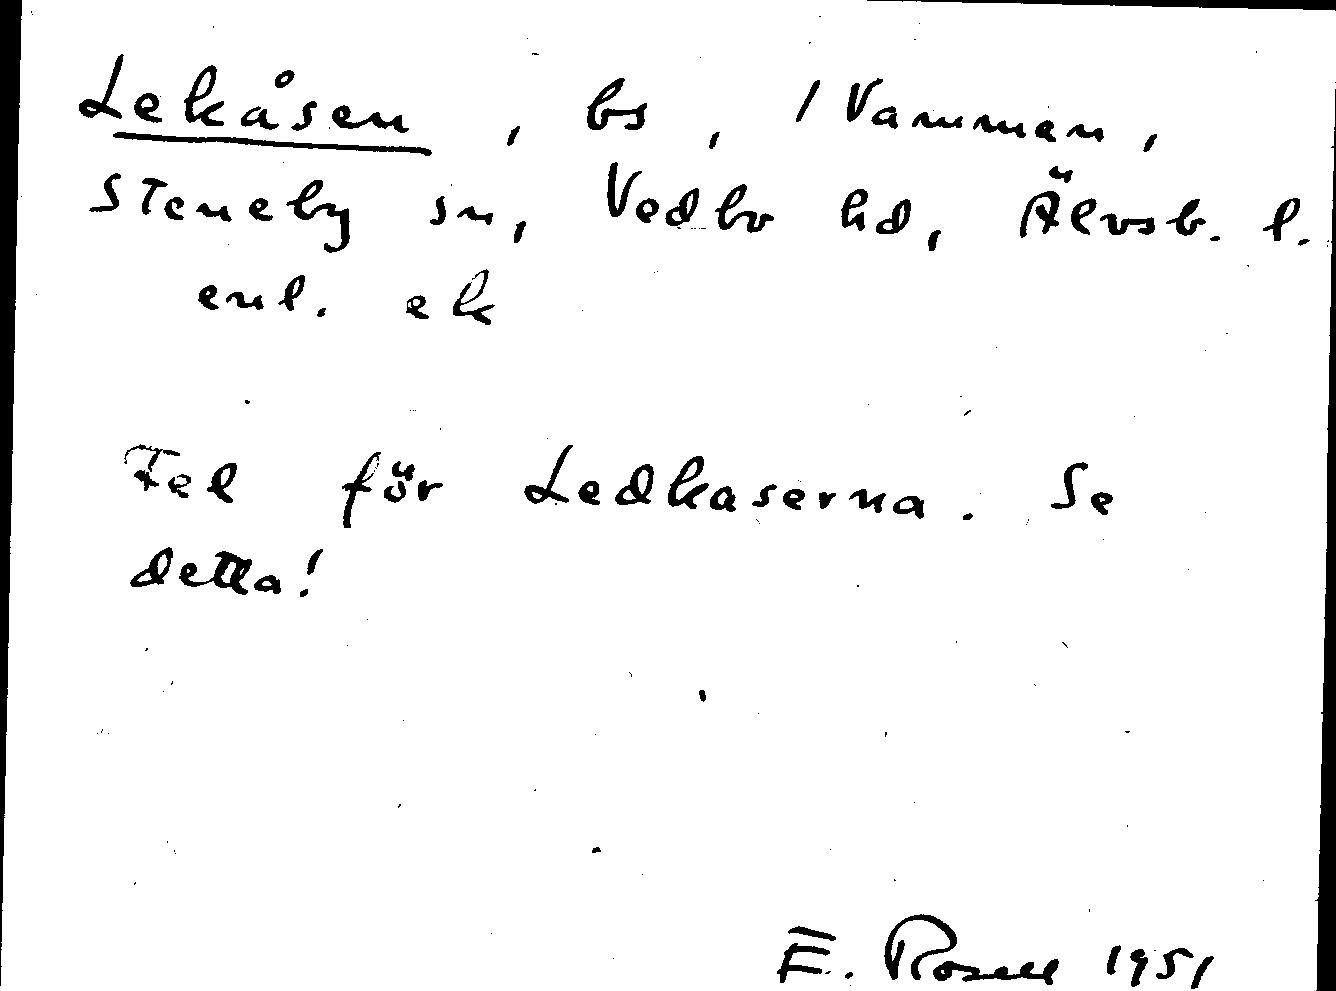 Lekåsen, bs, /Vammen,
Steneby sn, Vedbo hd, Älvsb. l.
enl. ek
Fel för Ledkaserna. Se
detta!
E. Rosell 1951